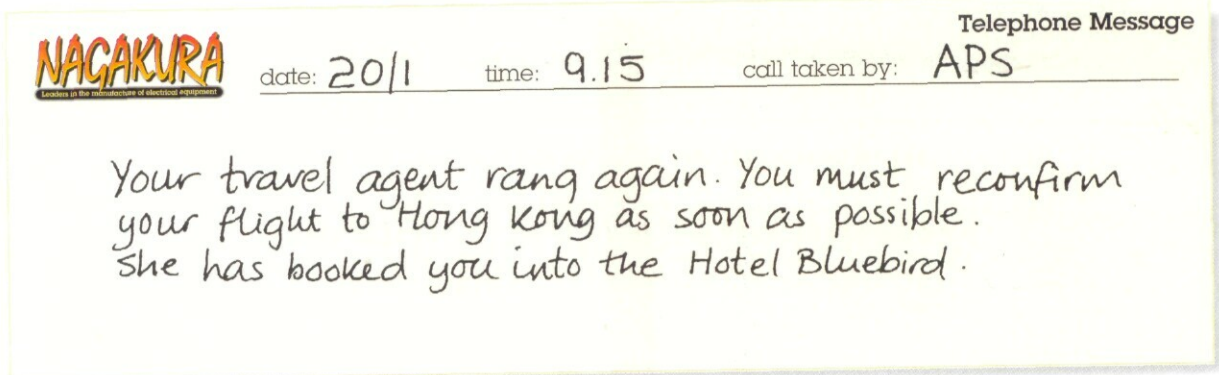 Telephone Message
NAGAKURA
Leaders in the manufacture of electrical equipment
date: 20/1 time: 9.15 call taken by: APS
Your travel agent rang again. You must reconfirm
your flight to Hong Kong as soon as possible.
She has booked you into the Hotel Bluebird.